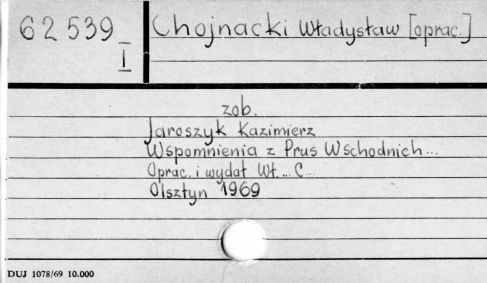 62 539 Chojnacki Władysław [oprac.]
I
zob.
Jaroszyk Kazimierz
Wspomnienia z Prus Wschodnich...
Oprac. i wydał Wł... C...
Olsztyn 1969
DUJ 1078/69 10.000